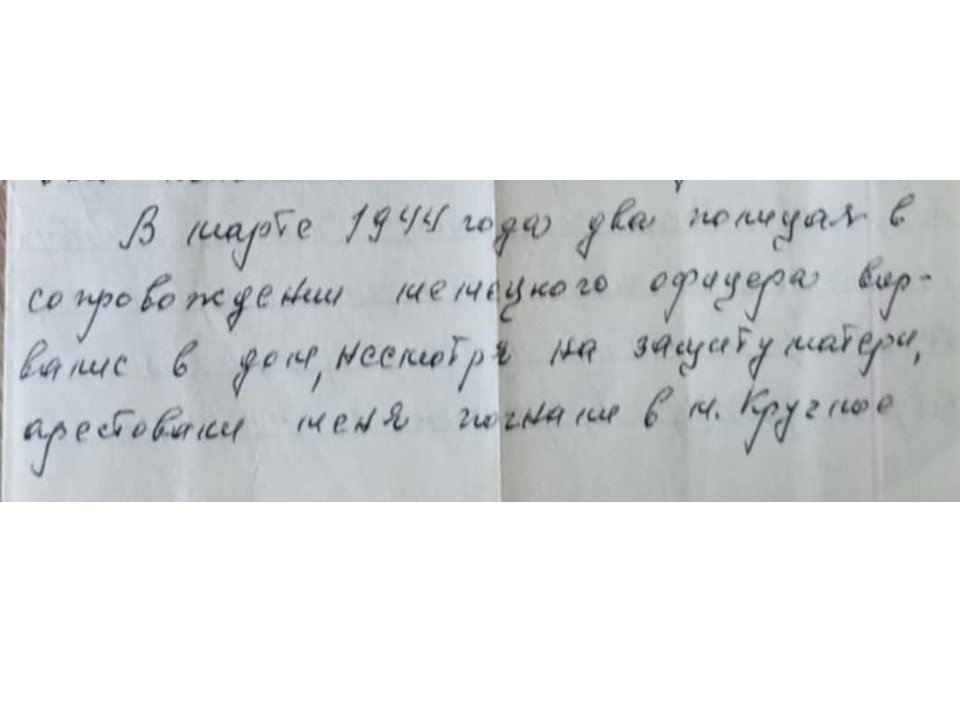 В марте 1944 года два полицая в
сопровождении немецкого офицера вор-
валис в дом, несмотря на защиту матери,
арестовали меня погнали в м. Кручное